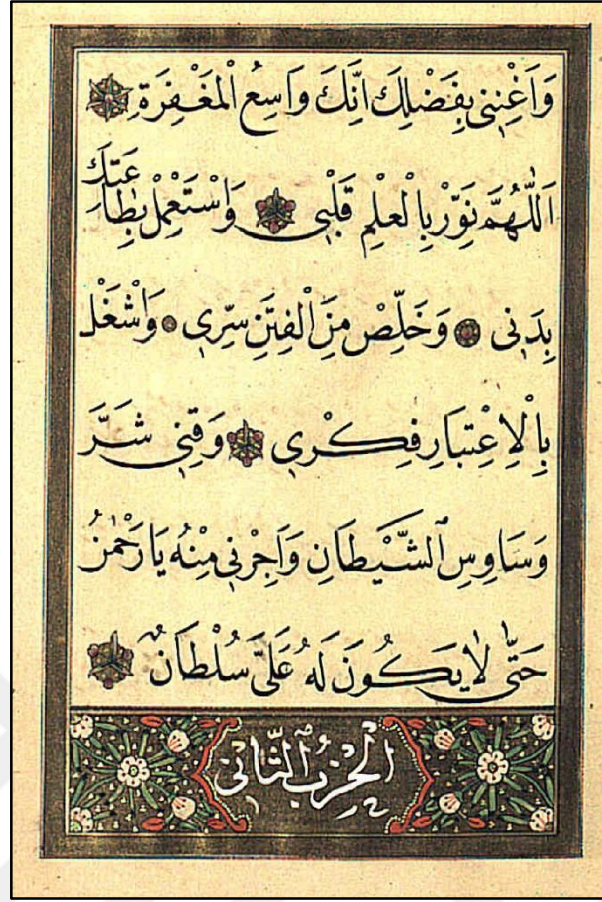 وَاَغْنِنِي بِفَضْلِكَ اِنَّكَ وَاسِعُ الْمَغْفِرَةِ
اَللّٰهُمَّ نَوِّرْ بِالْعِلْمِ قَلْبِي وَاسْتَعْمِلْ بِطَاعَتِكَ
بَدَنِي وَخَلِّصْ مِنَ الْفِتَنِ سِرِّي وَاشْغَلْ
بِالْاِعْتِبَارِ فِكْرِي وَقِنِي شَرَّ
وَسَاوِسِ الشَّيْطَانِ وَاَجِرْنِي مِنْهُ يَا رَحْمٰنُ
حَتّٰى لَا يَكُونَ لَهُ عَلَيَّ سُلْطَانٌ
اَلْحِزْبُ الثَّانِي